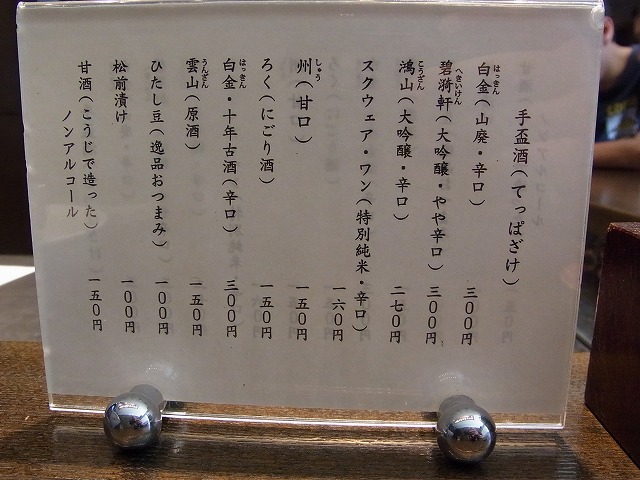 手盃酒（てっぱざけ）
白金（山廃・辛口） 三００円
はっきん
碧漪軒（大吟醸・やや辛口） 三００円
へきいけん
鴻山（大吟醸・辛口） 二七０円
こうざん
スクウェア・ワン（特別純米・辛口） 一六０円
州（甘口） 一五０円
しゅう
ろく（にごり酒） 一五０円
白金・十年古酒（辛口） 三００円
はっきん
雲山（原酒） 一五０円
うんざん
ひたし豆（逸品おつまみ） 一００円
松前漬け 一００円
甘酒（こうじで造った） 一五０円
ノンアルコール